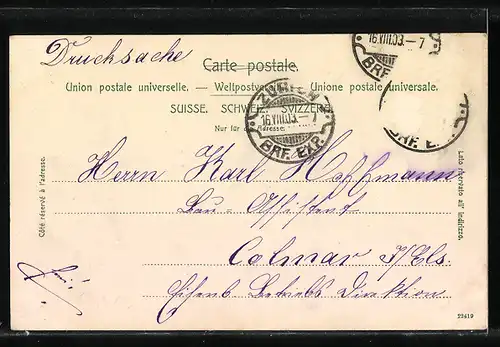 Drucksache
Carte postale.
Union postale universelle. — Weltpostverein. — Unione postale universale.
SUISSE. SCHWEIZ. SVIZZERA.
Nur für die Adresse.
ZÜRICH
16.VIII.03.–7
BRF. EXP.
16.VIII.03.–7
BRF. EXP.
Côté réservé à l'adresse.
Lato riservato all' indirizzo.
Herrn Karl Hoffmann
Bau-Assistent
Colmar i/Els.
Eisenb. Betriebs Direktion
22419